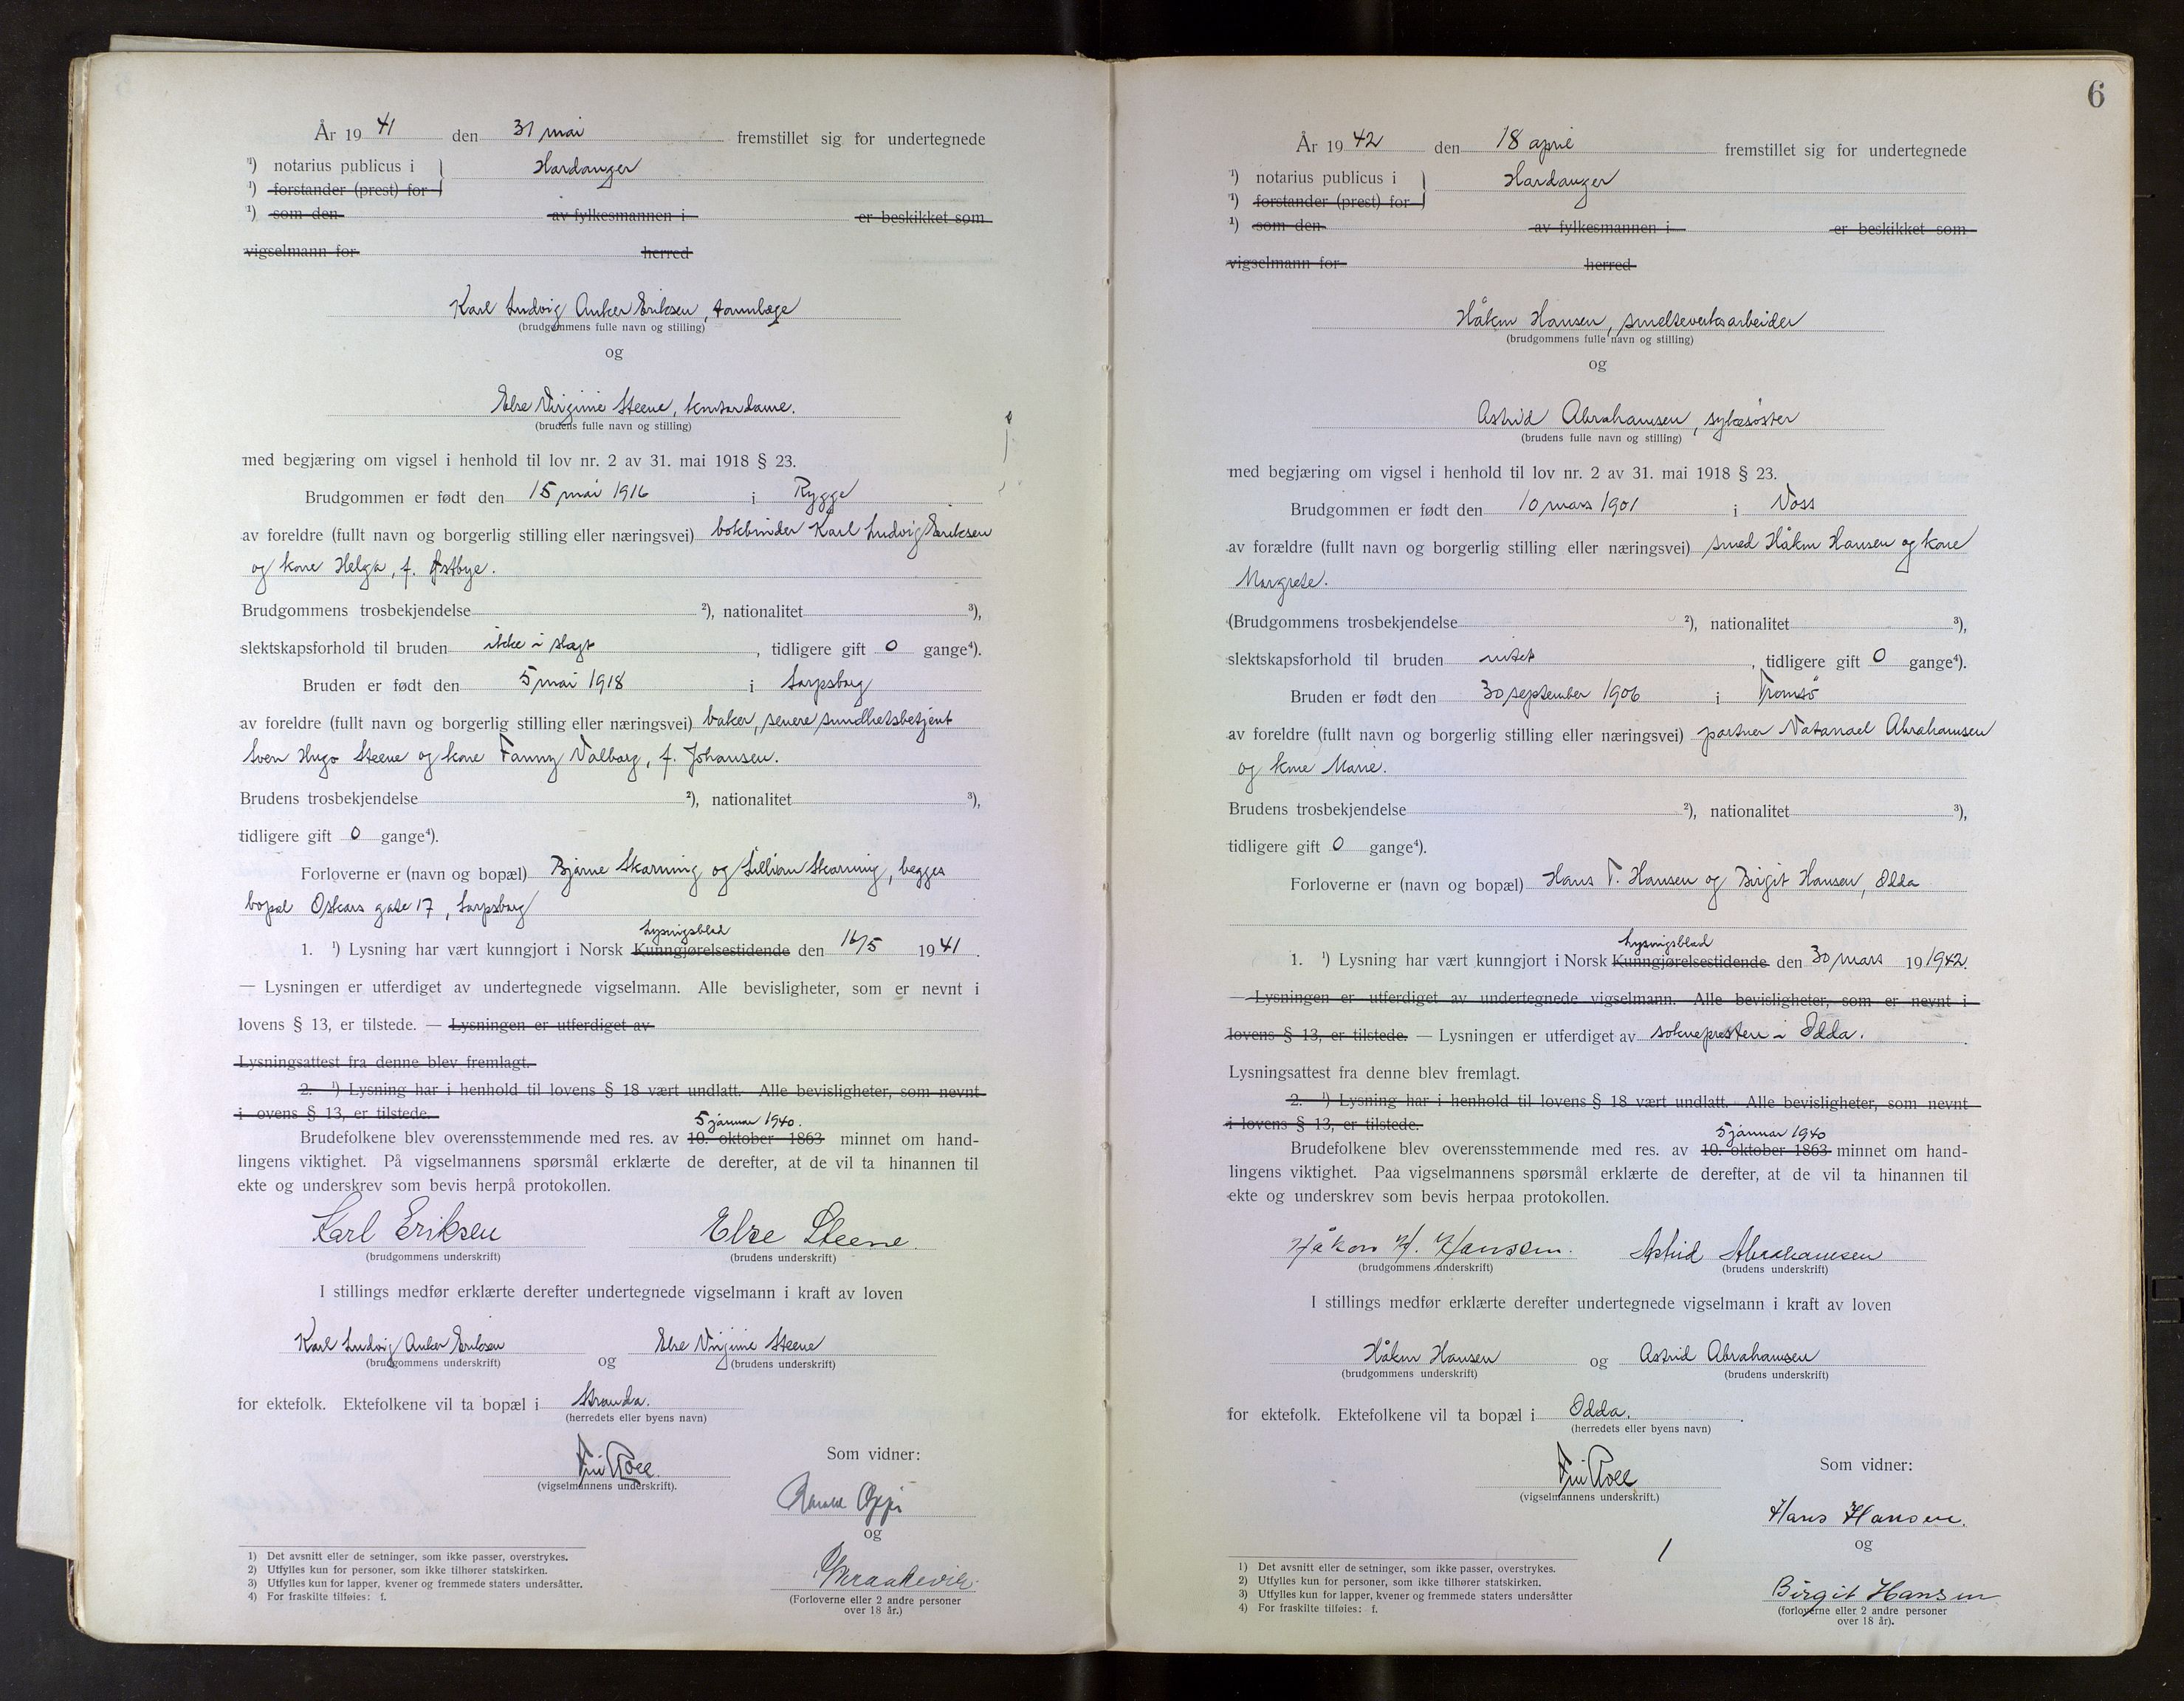 År 19 41 den 31 mai fremstillet sig for undertegnede
¹) notarius publicus i } Hardanger
¹) forstander (prest) for
¹) som den av fylkesmannen i er beskikket som
vigselmann for herred
Karl Ludvig Anker Eriksen, tannlæge
(brudgommens fulle navn og stilling)
og
Else Virginie Steene, kontordame.
(brudens fulle navn og stilling)
med begjæring om vigsel i henhold til lov nr. 2 av 31. mai 1918 § 23.
Brudgommen er født den 15 mai 1916 i Rygge
av foreldre (fullt navn og borgerlig stilling eller næringsvei) bokbinder Karl Ludvig Eriksen
og kone Helga, f. Østbye.
Brudgommens trosbekjendelse ²), nationalitet ³),
slektskapsforhold til bruden ikke i slagt, tidligere gift 0 gange⁴).
Bruden er født den 5 mai 1918 i Sarpsborg
av foreldre (fullt navn og borgerlig stilling eller næringsvei) baker, senere sundhetsbetjent
Sven Hugo Steene og kone Fanny Valborg, f. Johansen.
Brudens trosbekjendelse ²), nationalitet ³),
tidligere gift 0 gange⁴).
Forloverne er (navn og bopæl) Bjarne Skarning og Lillian Skarning, begges
bopæl Oskars gate 17, Sarpsborg
Lysingsblad
1. ¹) Lysning har vært kunngjort i Norsk Kunngjørelsestidende den 16/5 1941.
— Lysningen er utferdiget av undertegnede vigselmann. Alle bevisligheter, som er nevnt i
lovens § 13, er tilstede. — Lysningen er utferdiget av
Lysningsattest fra denne blev fremlagt.
2. ¹) Lysning har i henhold til lovens § 18 vært undlatt. Alle bevisligheter, som nevnt
i ovens § 13, er tilstede.
5 januar 1940.
Brudefolkene blev overensstemmende med res. av 10. oktober 1863 minnet om hand-
lingens viktighet. På vigselmannens spørsmål erklærte de derefter, at de vil ta hinannen til
ekte og underskrev som bevis herpå protokollen.
Karl Eriksen Else Steene.
(brudgommens underskrift) (brudens underskrift)
I stillings medfør erklærte derefter undertegnede vigselmann i kraft av loven
Karl Ludvig Anker Eriksen og Else Virginie Steene
(brudgommens underskrift) (brudens underskrift)
for ektefolk. Ektefolkene vil ta bopæl i Stranda.
(herredets eller byens navn)
Som vidner:
(vigselmannens underskrift).
Harald
og
(Forloverne eller 2 andre personer
over 18 år.)
1) Det avsnitt eller de setninger, som ikke passer, overstrykes.
2) Utfylles kun for personer, som ikke tilhører statskirken.
3) Utfylles kun for lapper, kvener og fremmede staters undersåtter.
4) For fraskilte tilføies: f.
6
År 19 42 den 18 april fremstillet sig for undertegnede
¹) notarius publicus i } Hardanger
¹) forstander (prest) for
¹) som den av fylkesmannen i er beskikket som
vigselmann for herred
Håkon Hansen, smelteverksarbeider
(brudgommens fulle navn og stilling)
og
Astrid Abrahamsen, sykesøster
(brudens fulle navn og stilling)
med begjæring om vigsel i henhold til lov nr. 2 av 31. mai 1918 § 23.
Brudgommen er født den 10 mars 1901 i Voss
av forældre (fullt navn og borgerlig stilling eller næringsvei) smed Håkon Hansen og kone
Margrete.
(Brudgommens trosbekjendelse ²), nationalitet ³),
slektskapsforhold til bruden intet, tidligere gift 0 gange⁴).
Bruden er født den 30 september 1906 i Tromsö
av foreldre (fullt navn og borgerlig stilling eller næringsvei) partner Natanael Abrahamsen
og kone Marie.
Brudens trosbekjendelse ²), nationalitet ³),
tidligere gift 0 gange⁴).
Forloverne er (navn og bopæl) Hans T. Hansen og Birgit Hansen, Odda
Lysningsblad
1. ¹) Lysning har vært kunngjort i Norsk Kunngjørelsestidende den 30 mars 19 1942.
— Lysningen er utferdiget av undertegnede vigselmann. Alle bevisligheter, som er nevnt i
lovens § 13, er tilstede. — Lysningen er utferdiget av soknepresten i Odda.
Lysningsattest fra denne blev fremlagt.
2. ¹) Lysning har i henhold til lovens § 18 vært undlatt. Alle bevisligheter, som nevnt
i lovens § 13, er tilstede.
5 januar 1940
Brudefolkene blev overensstemmende med res. av 10. oktober 1863 minnet om hand-
lingens viktighet. Paa vigselmannens spørsmål erklærte de derefter, at de vil ta hinannen til
ekte og underskrev som bevis herpaa protokollen.
Håkon H. Hanssen. Astrid Abrahamsen
(brudgommens underskrift) (brudens underskrift)
I stillings medfør erklærte derefter undertegnede vigselmann i kraft av loven
Håkon Hansen og Astrid Abrahamsen
(brudgommens underskrift) (brudens underskrift)
for ektefolk. Ektefolkene vil ta bopæl i Odda.
(herredets eller byens navn)
Som vidner:
(vigselmannens underskrift.)
Hans Hansen.
og
Birgit Hansen
(forloverne eller 2 andre personer
over 18 år).
1) Det avsnitt eller de setninger, som ikke passer, overstrykes.
2) Utfylles kun for personer, som ikke tilhører statskirken.
3) Utfylles kun for lapper, kvener og fremmede staters undersåtter
4) For fraskilte tilføies: f.